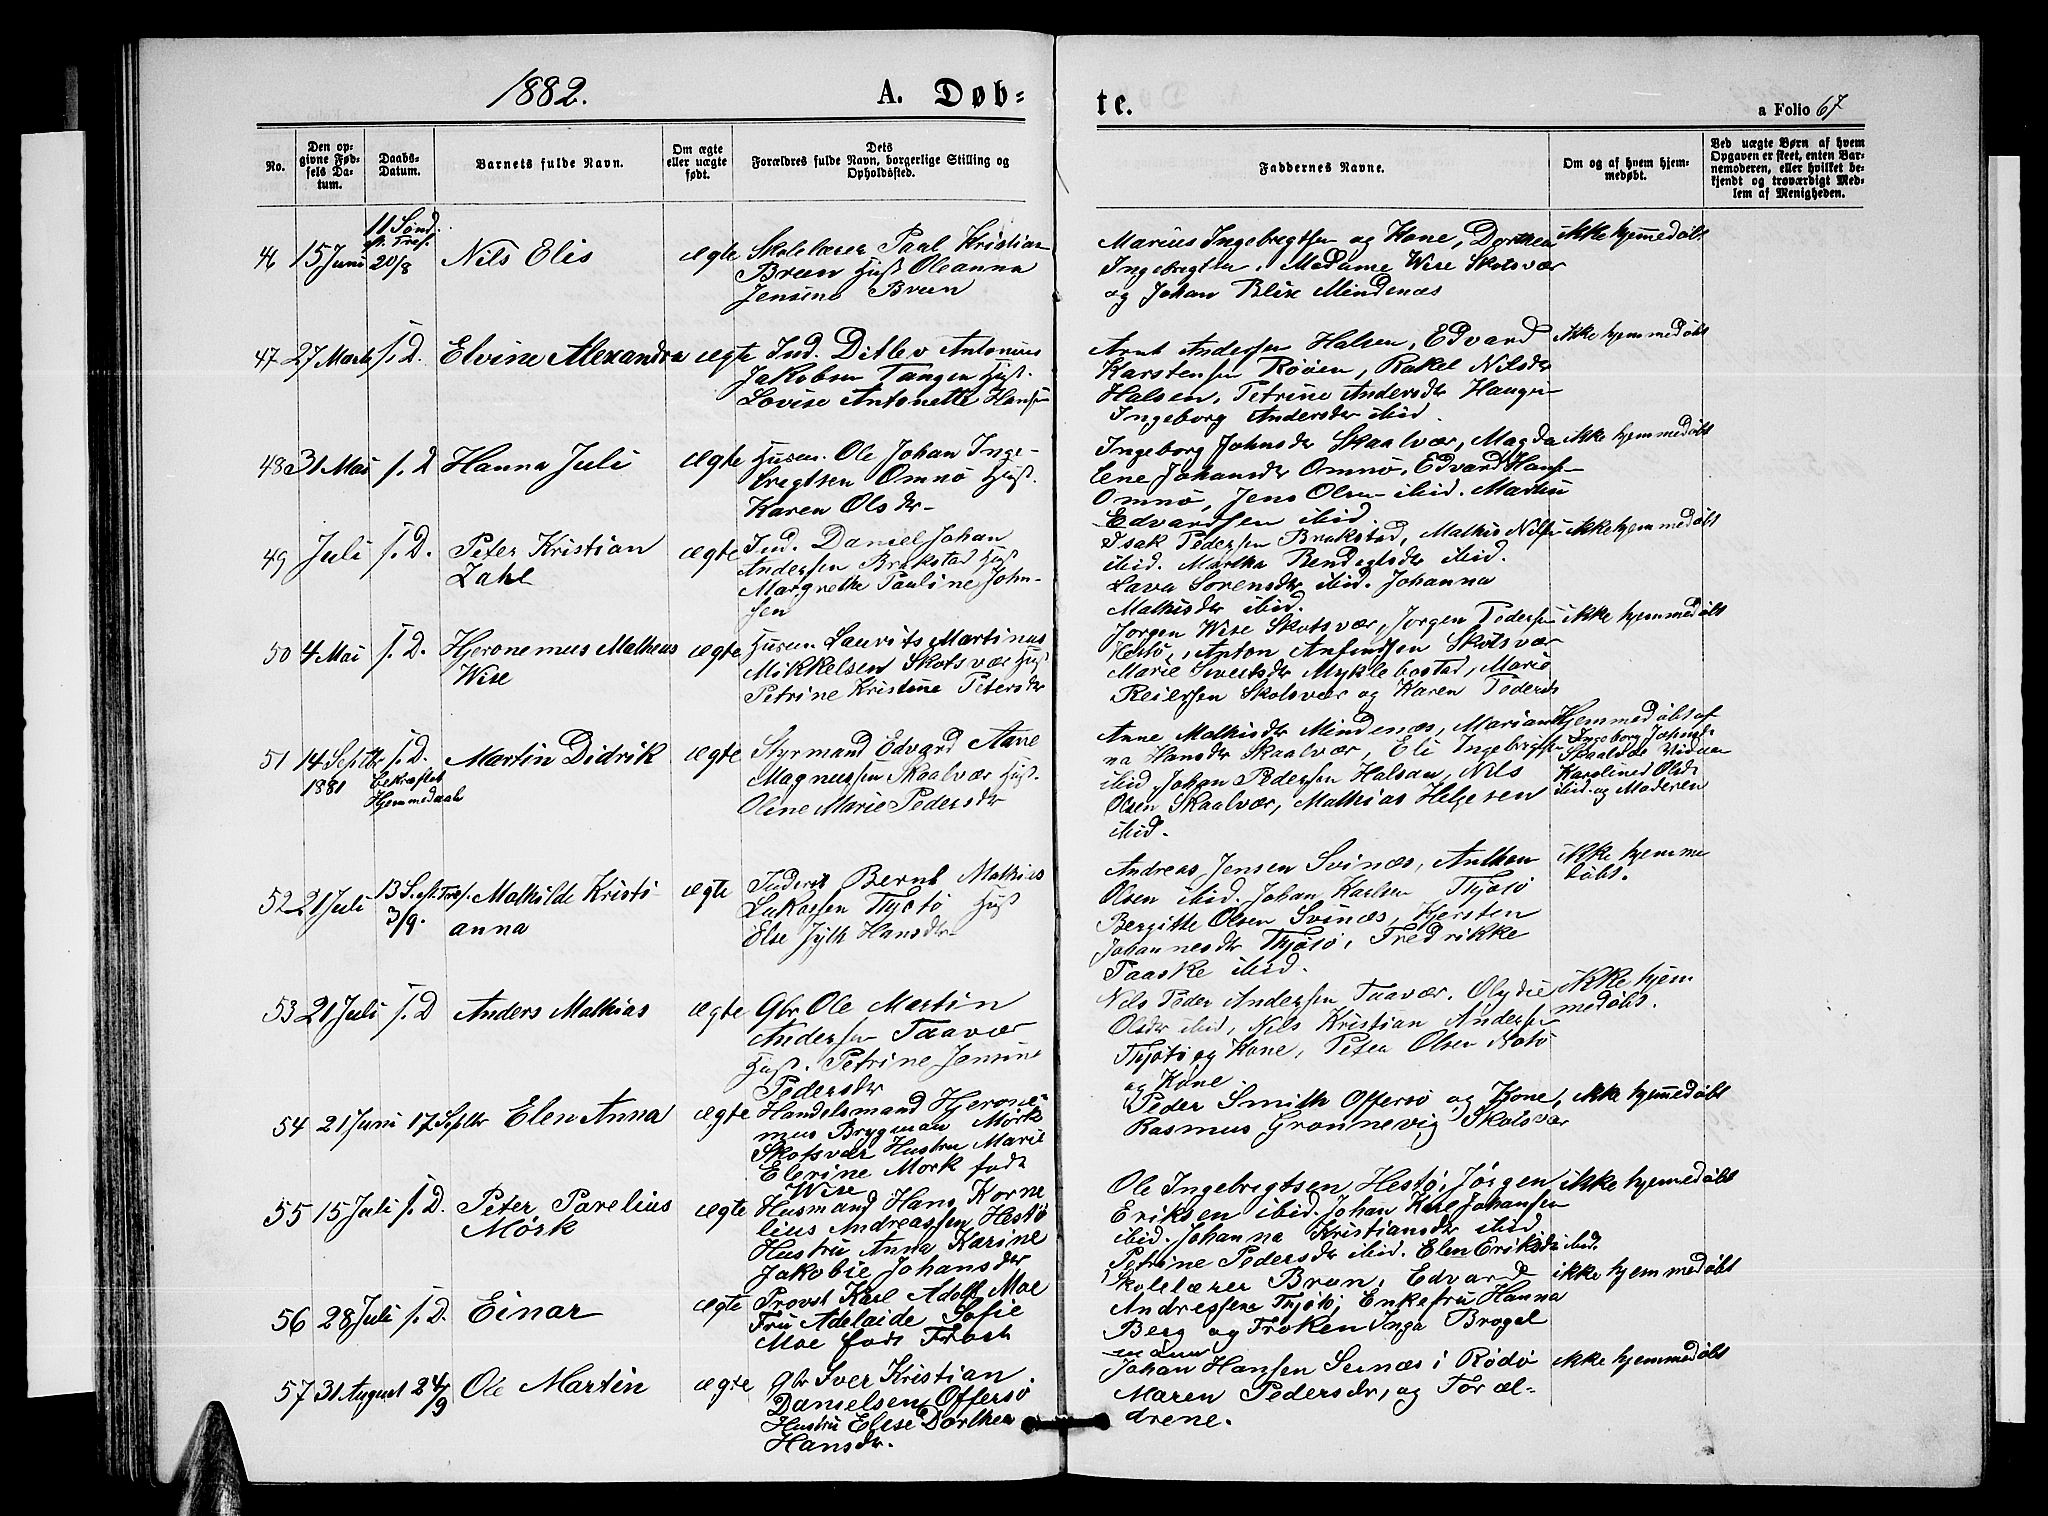 1882.
A. Døb=
te.
a Folio 67
No.
Den op-
givne Fød-
sels Da-
tum.
Daabs-
Datum.
Barnets fulde Navn.
Om ægte
eller uægte
født.
Dets
Forældres fulde Navn, borgerlige Stilling og
Opholdssted.
Faddernes Navne.
Om og af hvem hjem-
medøbt.
Ved uægte Børn af hvem
Opgaven er skeet, enten Bar-
nemoderen, eller hvilket be-
kjendt og troværdigt Med-
lem af Menigheden.
46 15 Juni
11 Sønd.
ef. Tref.
20/8
Nils Elis
ægte
Skolelærer Paul Kristian
Brun Hust Oleanna
Jensine Brun
Marius Ingebregtsen og Kone, Dorthea
Ingebregtsen, Madame Wise Skotsvær
og Johan Blix Mindenæs
ikke hjemmedøbt
47 27 Marts s. D. Elvine Alexandra ægte
Ind. Ditlev Antonius
Jakobsen Tangen Hust.
Lovise Antonette Hansen
Arnt Andersen Halsen, Edvard
Karstensen Røøen, Rakel Nilsdr
Halsen, Petrine Andersdr Haugen
Ingeborg Andersdr ibid.
ikke hjemmedøbt
48 31 Mai s. D Hanna Juli ægte
Husm. Ole Johan Inge-
bregtsen Omnø Hust.
Karen Olsdr
Ingeborg Johnsdr Skaalvær, Magda
lene Johansdr Omnø, Edvard Hans-
Omnø, Jens Olsen ibid. Martin
Edvardsen ibid.
ikke hjemmedøbt
49 Juli s. D. Peter Kristian
Zahl
ægte
Ind. Daniel Johan
Andersen Brækstad Hust
Margrethe Pauline John-
sen
Isak Pedersen Brækstad, Mathis Nilsen
ibid. Martha Bendigtsdr ibid.
Lava Sørensdr ibid. Johanna
Mathisdr ibid.
ikke hjemmedøbt
50 4 Mai s. D. Hjeronemus Matheus
Wise
ægte
Husm Laurits Martinus
Mikkelsen Skotsvær Hust
Petrine Kristine Petersdr
Jørgen Wise Skotsvær, Jørgen Pedersen
Hestø, Anton Anfindsen Skotsvær
Marie Sivertsdr Myklebostad, Marie
Reiersen Skotsvær og Karen Pedersdr
ikke hjemmedøbt
51 14 Septbr
1881
s. D.
bekræftet
Hjemmedaab
Martin Didrik
ægte
Styrmand Edvard Aane
Magnussen Skaalvær Hust.
Oline Marie Pedersdr
Anne Mathisdr Mindenæs, Marian
na Hansdr Skaalvær, Eli Ingebrigtsen
ibid Johan Pedersen Halsan, Nils
Olsen Skaalvær, Mathias Helgesen
ibid.
Hjemmedøbt af
Ingeborg
Skaalvær
Karoline Olsdr
ibid. og Moderen
52 21 Juli
13 S. eft. Tref.
3/9.
Mathilde Kristi
anna
ægte
Inderst Bernt Mathias
Lukassen Thjøtø Hust
Else Hansdr
Andreas Jensen Svinæs, Anthon
Olsen ibid. Johan Karlsen Thjøtø
Bergitte Olsen Svinæs, Kjersten
Johannesdr Thjøtø, Fredrikke
Paaske ibid.
ikke hjemme
døbt.
53 21 Juli s. D Anders Mathias ægte
Gbr Ole Martin
Andersen Taavær
Hust. Petrine Jensine
Pedersdr
Nils Peder Andersen Taavær. Olydie
Olsdr ibid, Nils Kristian Andersen
Thjøtø og Kone, Peter Olsen Rotø
og Kone
ikke hjem
medøbt.
54 21 Juni 17 Septbr Elen Anna ægte
Handelsmand Hjerone-
mus Brygman Mørk
Skotsvær Hustru Marie
Elerine Mørk født
Wise
Peder Smith Offersø og Kone,
Rasmus Grønnevig Skotsvær
ikke hjemmedøbt
55 15 Juli s. D. Peter Parelius
Mørk
ægte
Husmand Hans Korne
lius Andreassen Hestø
Hustru Anna Karine
Jakobie Johansdr
Ole Ingebregtsen Hestø, Jørgen
Eriksen ibid. Johan Karl Johansen
ibid. Johanna Kristiansdr ibid
Petrine Pedersdr ibid. Elen Eriksdr ibid.
ikke hjemmedøbt
56 28 Juli s. D. Einar
ægte
Provst Karl Adolf Moe
Fru Adelaide Sofie
Moe født Frost
Skolelærer Brun, Edvard
Andresen Thjøtø, Enkefru Hanna
Berg og Frøken Inga Brogel
mann
ikke hjemmedøbt
57 31 August 24/9 Ole Martin ægte
Gbr Iver Kristian
Danielsen Offersø
Hustru Elise Dorthea
Hansdr.
Johan Hansen Sernæs i Rødø
Maren Pedersdr, og Foræl=
drene.
ikke hjemmedøbt